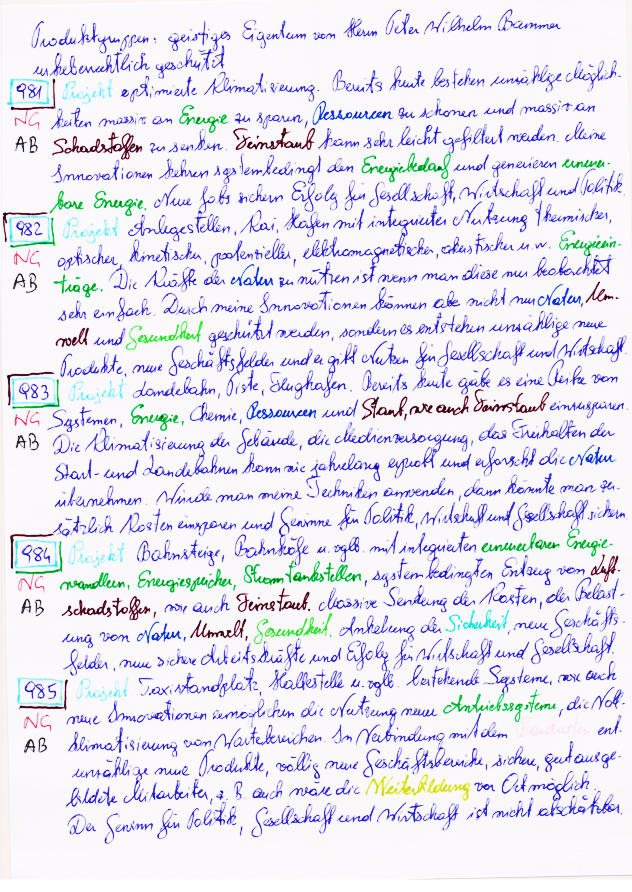 Produktgruppen: geistiges Eigentum von Herrn Peter Wilhelm Bammer
urheberrechtlich geschützt
981 Projekt optimierte Klimatisierung. Bereits heute bestehen unzählige Möglich-
NG keiten massiv an Energie zu sparen, Ressourcen zu schonen und massiv an
AB Schadstoffen zu senken. Feinstaub kann sehr leicht gefiltert werden. Meine
Innovationen kehren systembedingt den Energiebedarf und generieren erneuer-
bare Energie. Neue Jobs sichern Erfolg für Gesellschaft, Wirtschaft und Politik.
982 Projekt Anlegestellen, Kai, Hafen mit integrierter Nutzung thermischer,
NG optischer, kinetischer, potenzieller, elektromagnetischer, akustischer u.w. Energieein-
AB träge. Die Kräfte der Natur zu nützen ist wenn man diese nur beobachtet
sehr einfach. Durch meine Innovationen können aber nicht nur Natur, Um-
welt und Gesundheit geschützt werden, sondern es entstehen unzählige neue
Produkte, neue Geschäftsfelder und es gibt Nutzen für Gesellschaft und Wirtschaft.
983 Projekt Landebahn, Piste, Flughafen. Bereits heute gäbe es eine Reihe von
NG Systemen, Energie, Chemie, Ressourcen und Staub, wie auch Feinstaub einzusparen.
AB Die Klimatisierung der Gebäude, die Medienversorgung, das Freihalten der
Start- und Landebahnen kann wie jahrelang erprobt und erforscht die Natur
übernehmen. Würde man meine Techniken anwenden, dann könnte man zu-
sätzlich Kosten einsparen und Gewinne für Politik, Wirtschaft und Gesellschaft sichern.
984 Projekt Bahnsteige, Bahnhöfe u. vglb. mit integrierten erneuerbaren Energie-
NG wandlern, Energiespeicher, Stromtankstellen, systembedingten Entzug von Luft-
AB schadstoffen, wie auch Feinstaub. Massive Senkung der Kosten, der Belast-
ung von Natur, Umwelt, Gesundheit, Anhebung der Sicherheit, neue Geschäfts-
felder, neue sichere Arbeitskräfte und Erfolg für Wirtschaft und Gesellschaft.
985 Projekt Taxistandplatz, Haltestelle u. vglb. bestehende Systeme, wie auch
NG neue Innovationen ermöglichen die Nutzung neuer Antriebssysteme, die Voll-
AB klimatisierung von Wartebereichen. In Verbindung mit dem ent.
unzählige neue Produkte, völlig neue Geschäftsbereiche, sichere, gut ausge-
bildete Mitarbeiter, z. B. auch wäre die Weiterbildung vor Ort möglich.
Der Gewinn für Politik, Gesellschaft und Wirtschaft ist nicht abschätzbar.